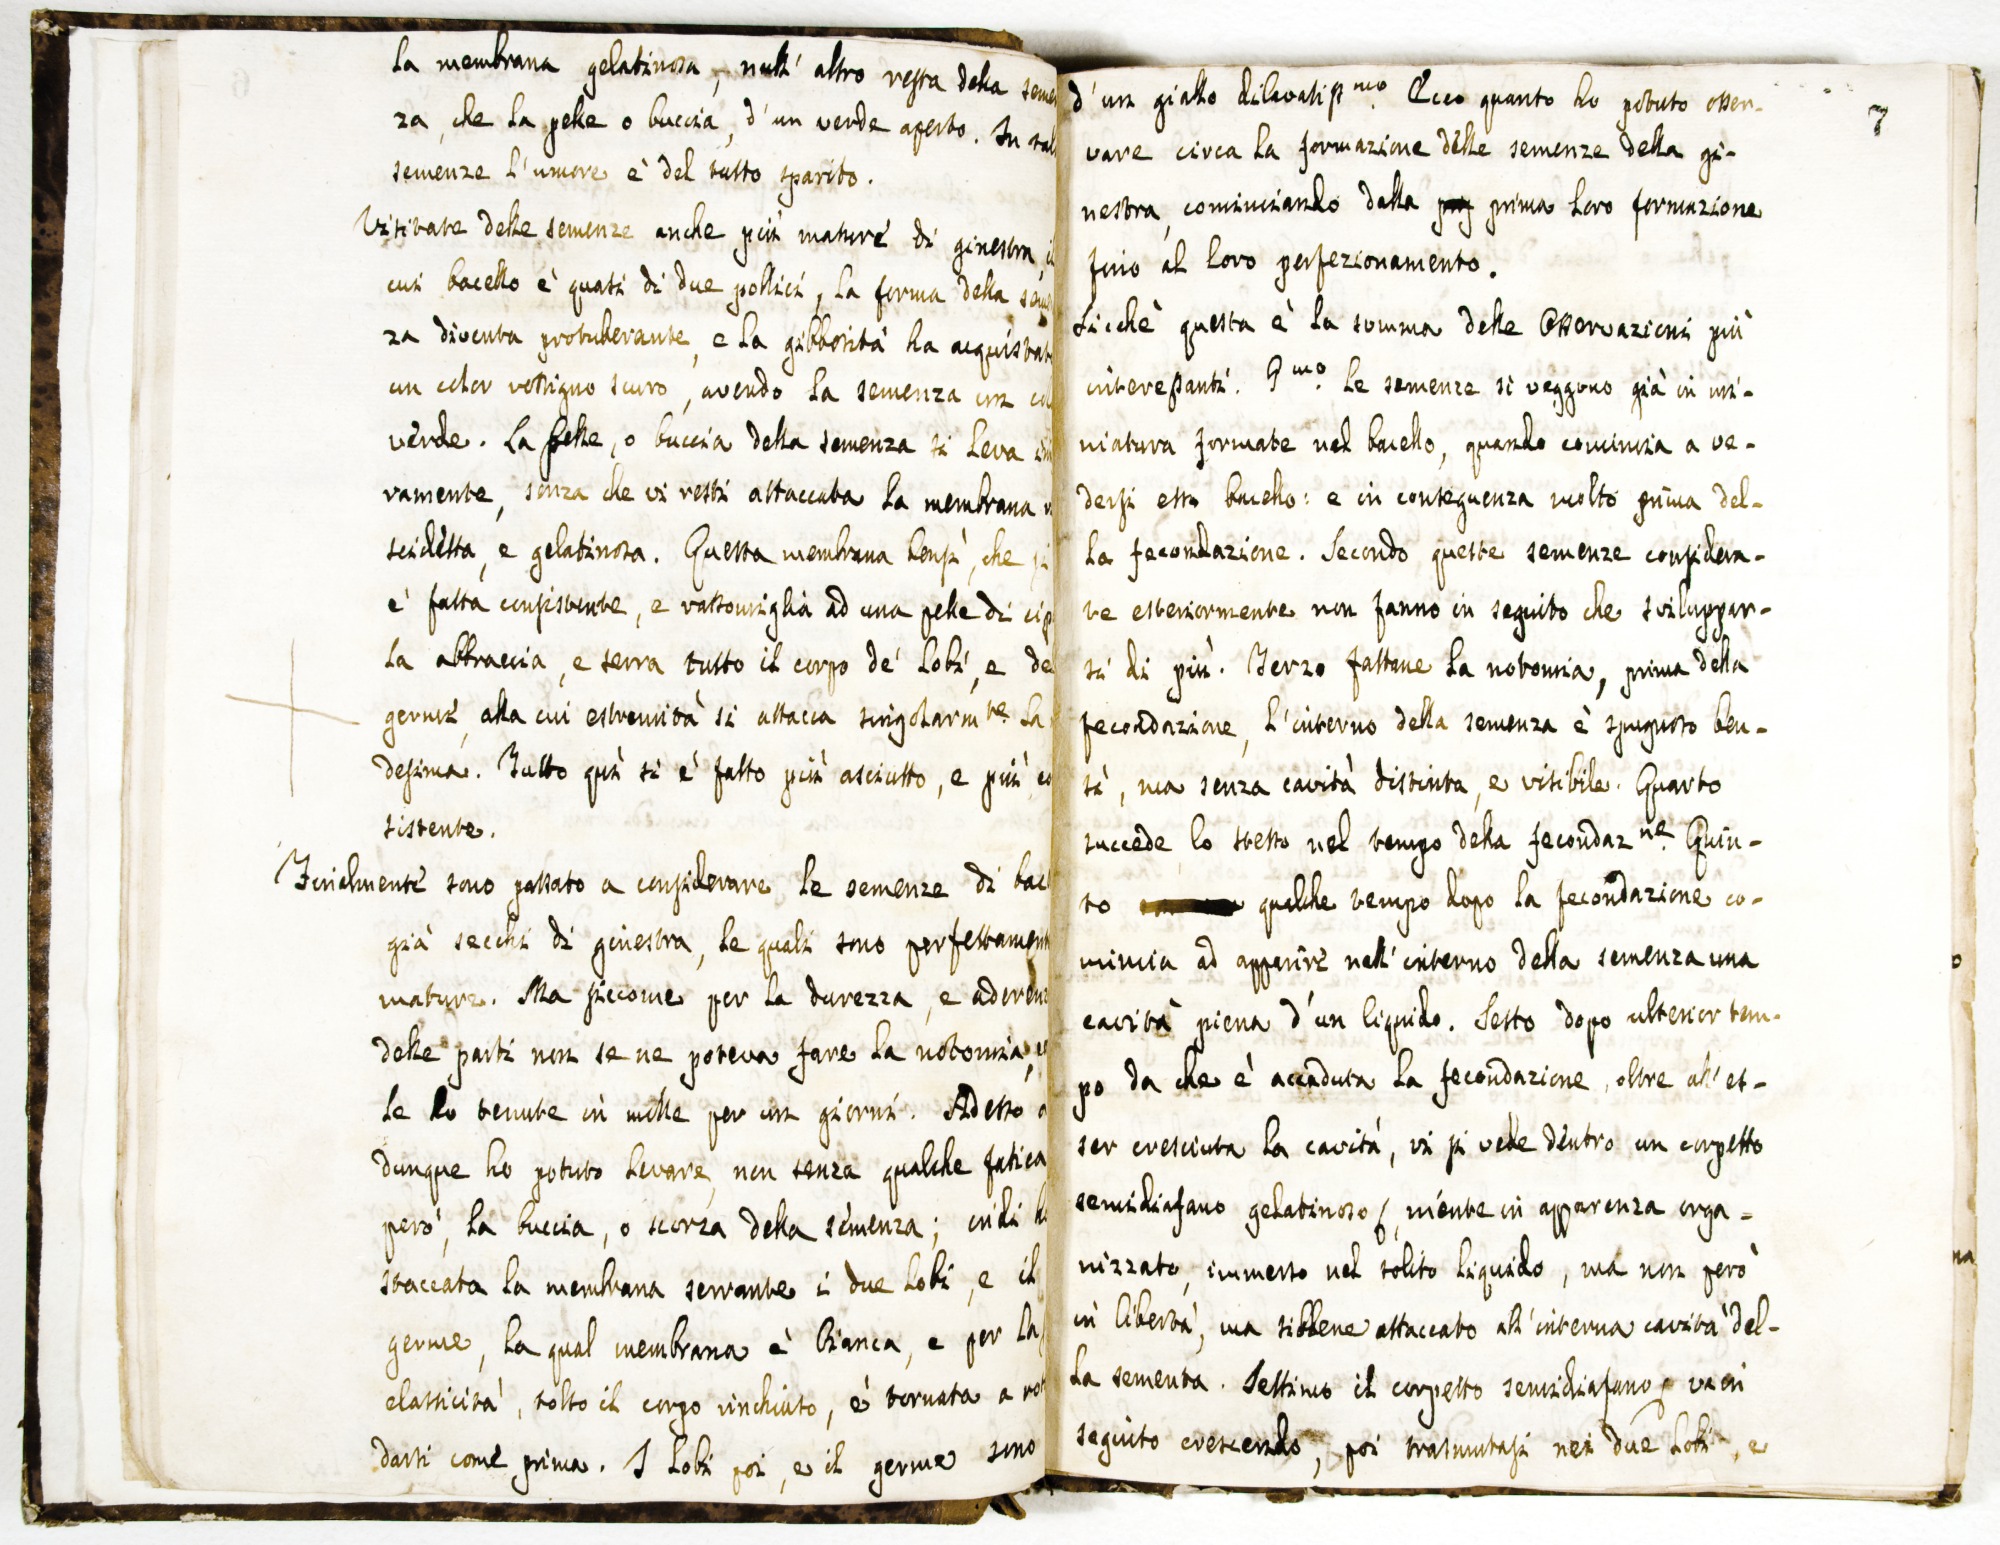 la membrana gelatinosa, null' altro resta della semen
za, che la pelle o buccia, d'un verde aperto. In tal
semenze l'umore è del tutto sparito.
Visitate delle semenze anche più mature di ginestra, il
cui bacello è quasi di due pollici, la forma della semen
za diventa protuberante, e la gibbosità ha acquistat
un color rossigno scuro, avendo la semenza un col
verde. La pelle, o buccia della semenza si leva in
vamente, senza che vi resti attaccata la membrana
scidetta, e gelatinosa. Questa membrana bensì, che si
è fatta consistente, e rassomiglia ad una pelle di cip
la abbraccia, e serra tutto il corpo de' lobi, e del
germe, alla cui estremità si attacca singolarmte. la
desima. Tutto qui si è fatto più asciutto, e più co
sistente.
Finalmente sono passato a considerare le semenze di bac
già secchi di ginestra, le quali sono perfettament
mature. Ma siccome per la durezza, e aderenz
delle parti non se ne poteva fare la notomia,
le ho tenute in molle per un giorni. Adesso
dunque ho potuto levare, non senza qualche fatica
però, la buccia, o scorza della semenza; indi h
staccata la membrana serrante i due lobi, e il
germe, la qual membrana è bianca, e per la
elasticità, tolto il corpo rinchiuso, è tornata a rot
darsi come prima. I lobi poi, e il germe sono
7
d'un giallo dilavatissmo. Ecco quanto ho potuto osser-
vare circa la formazione delle semenze della gi-
nestra, cominciando dalla prima loro formazione
fino al loro perfezionamento.
Sicchè questa è la somma delle Osservazioni più
interessanti. Pmo. le semenze si veggono già in mi-
niatura formate nel bacello, quando comincia a ve-
dersi esso bacello: e in conseguenza molto prima del-
la fecondazione. Secondo queste semenze considera-
te esteriormente non fanno in seguito che sviluppar-
si di più. Terzo fattane la notomia, prima della
fecondazione, l'interno della semenza è spugnoso ben-
sì, ma senza cavità distinta, e visibile. Quarto
succede lo stesso nel tempo della fecondazne. Quin-
to qualche tempo dopo la fecondazione co-
mincia ad apperire nell'interno della semenza una
cavità piena d'un liquido. Sesto dopo ulterior tem-
po da che è accaduta la fecondazione, oltre all'es-
ser cresciuta la cavità, vi si vede dentro un corpetto
semidiafano gelatinoso, niente in apparenza orga-
nizzato, immerso nel solito liquido, ma non però
in libertà, ma sibbene attaccato all'interna cavità del-
la sementa. Settimo il corpetto semidiafano va in
seguito crescendo, poi trasmutasi nei due lobi, e